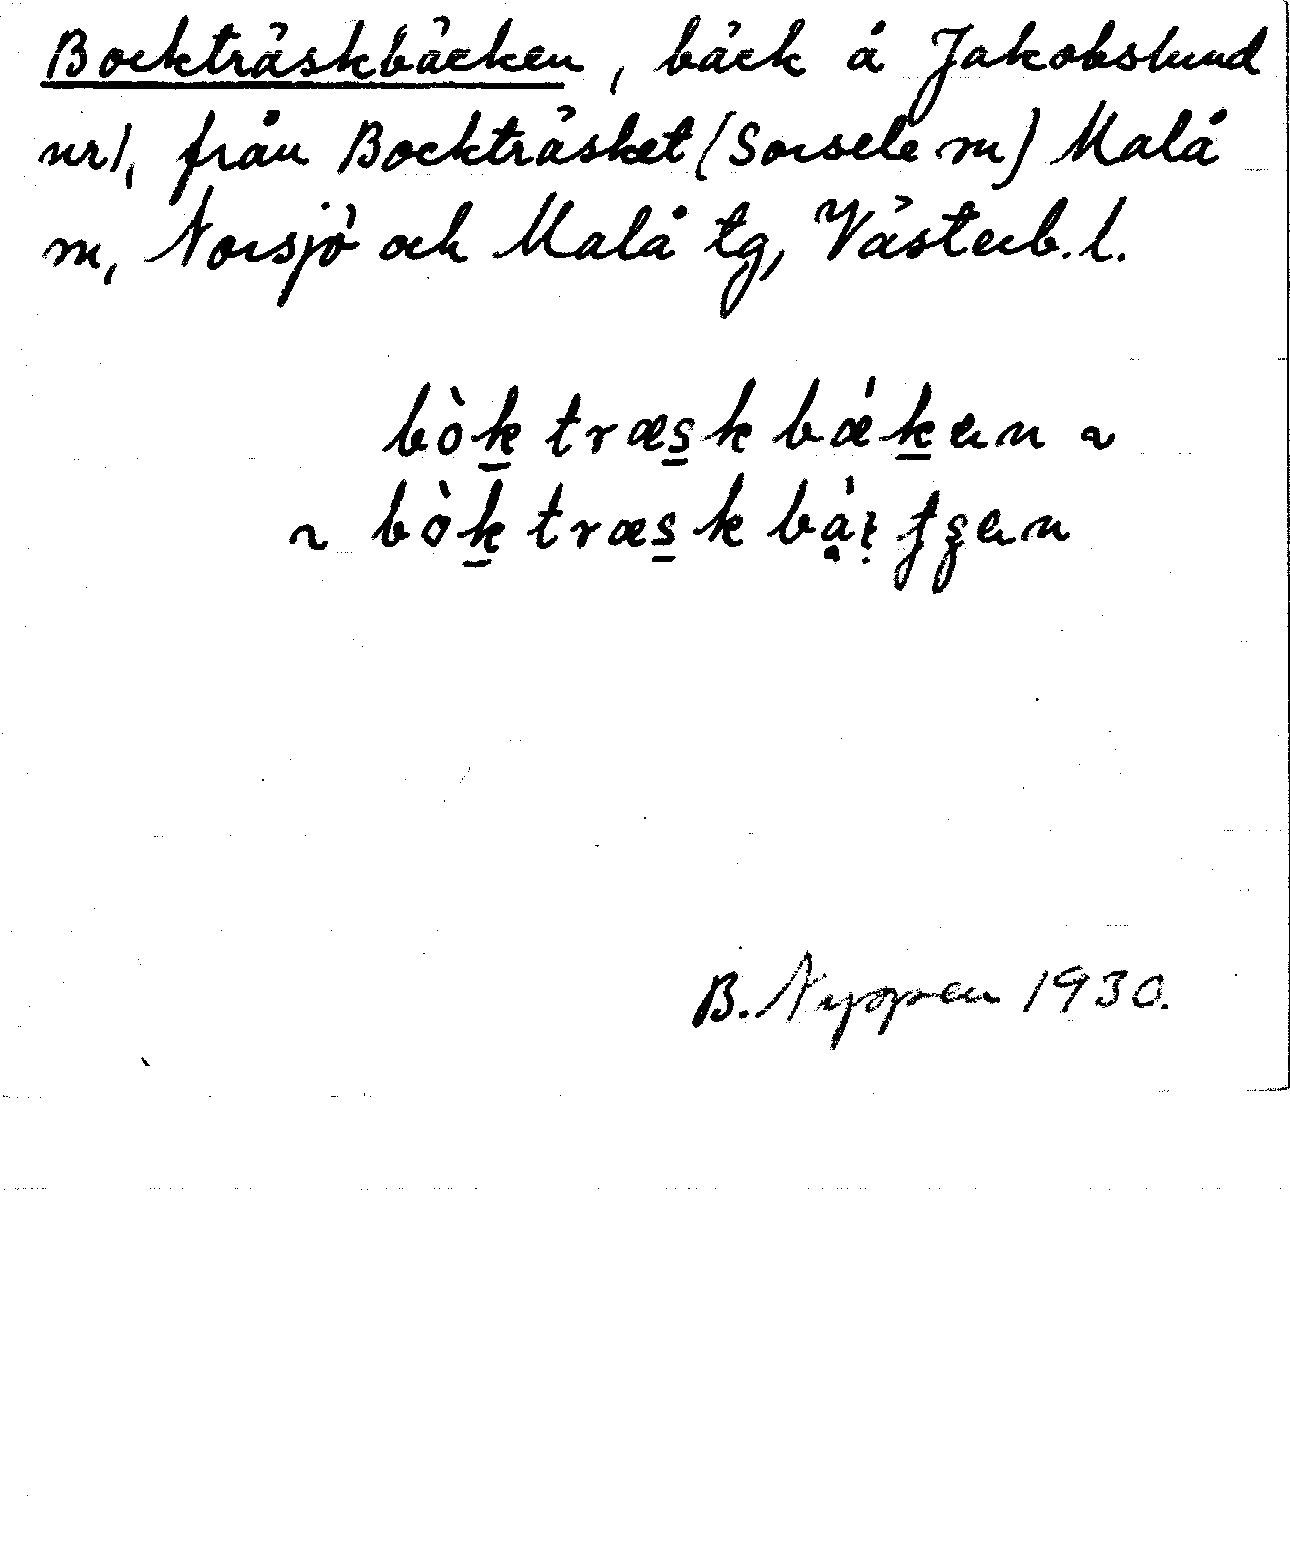 Bockträskbäcken, bäck å Jakobslund
nr 1, från Bockträsket (Sorsele m) Malå
m, Norsjö och Malå tg, Västerb. l.
bòk̲træs̲kbǽk̲en ~
~ bòk̲træs̲kb
B. Nyppen 1930.